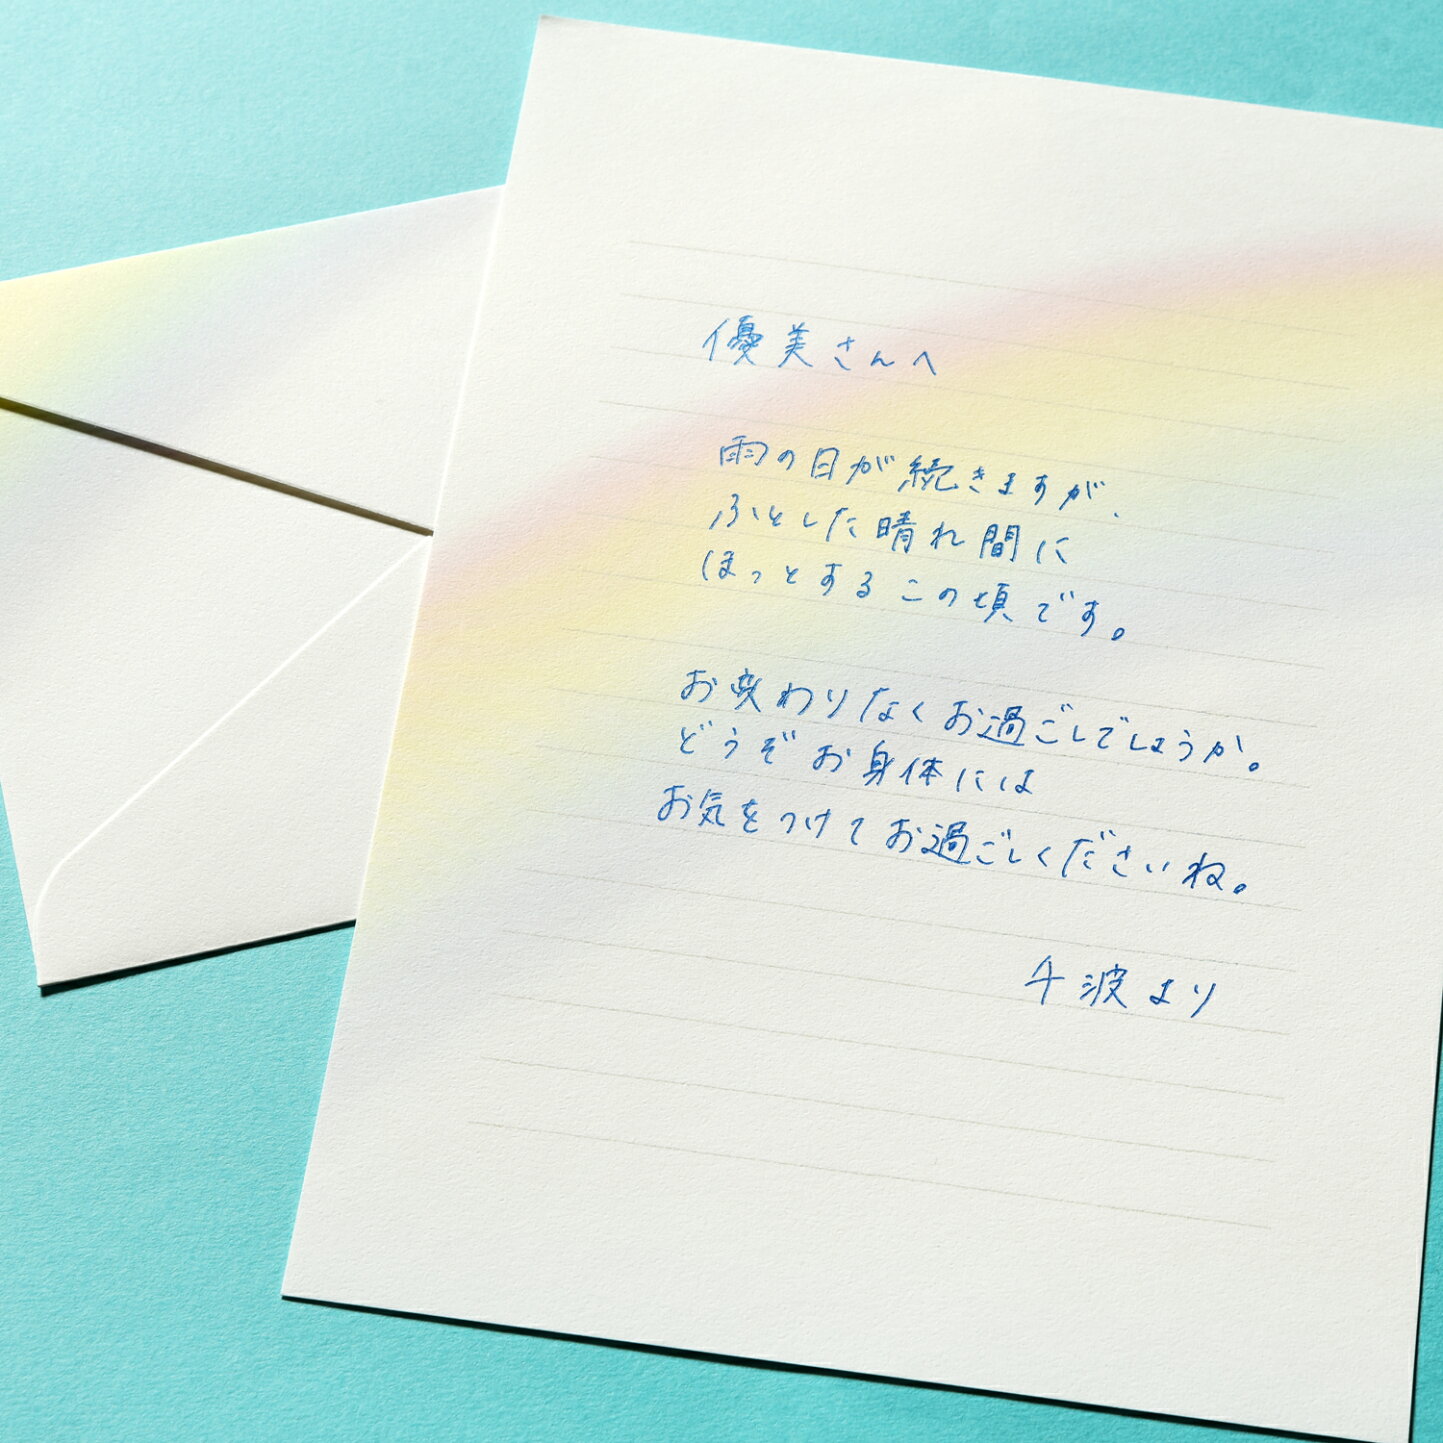 優美さんへ
雨の日が続きますが、
ふとした晴れ間に
ほっとするこの頃です。
お変わりなくお過ごしでしょうか。
どうぞお身体には
お気をつけてお過ごしくださいね。
千波より